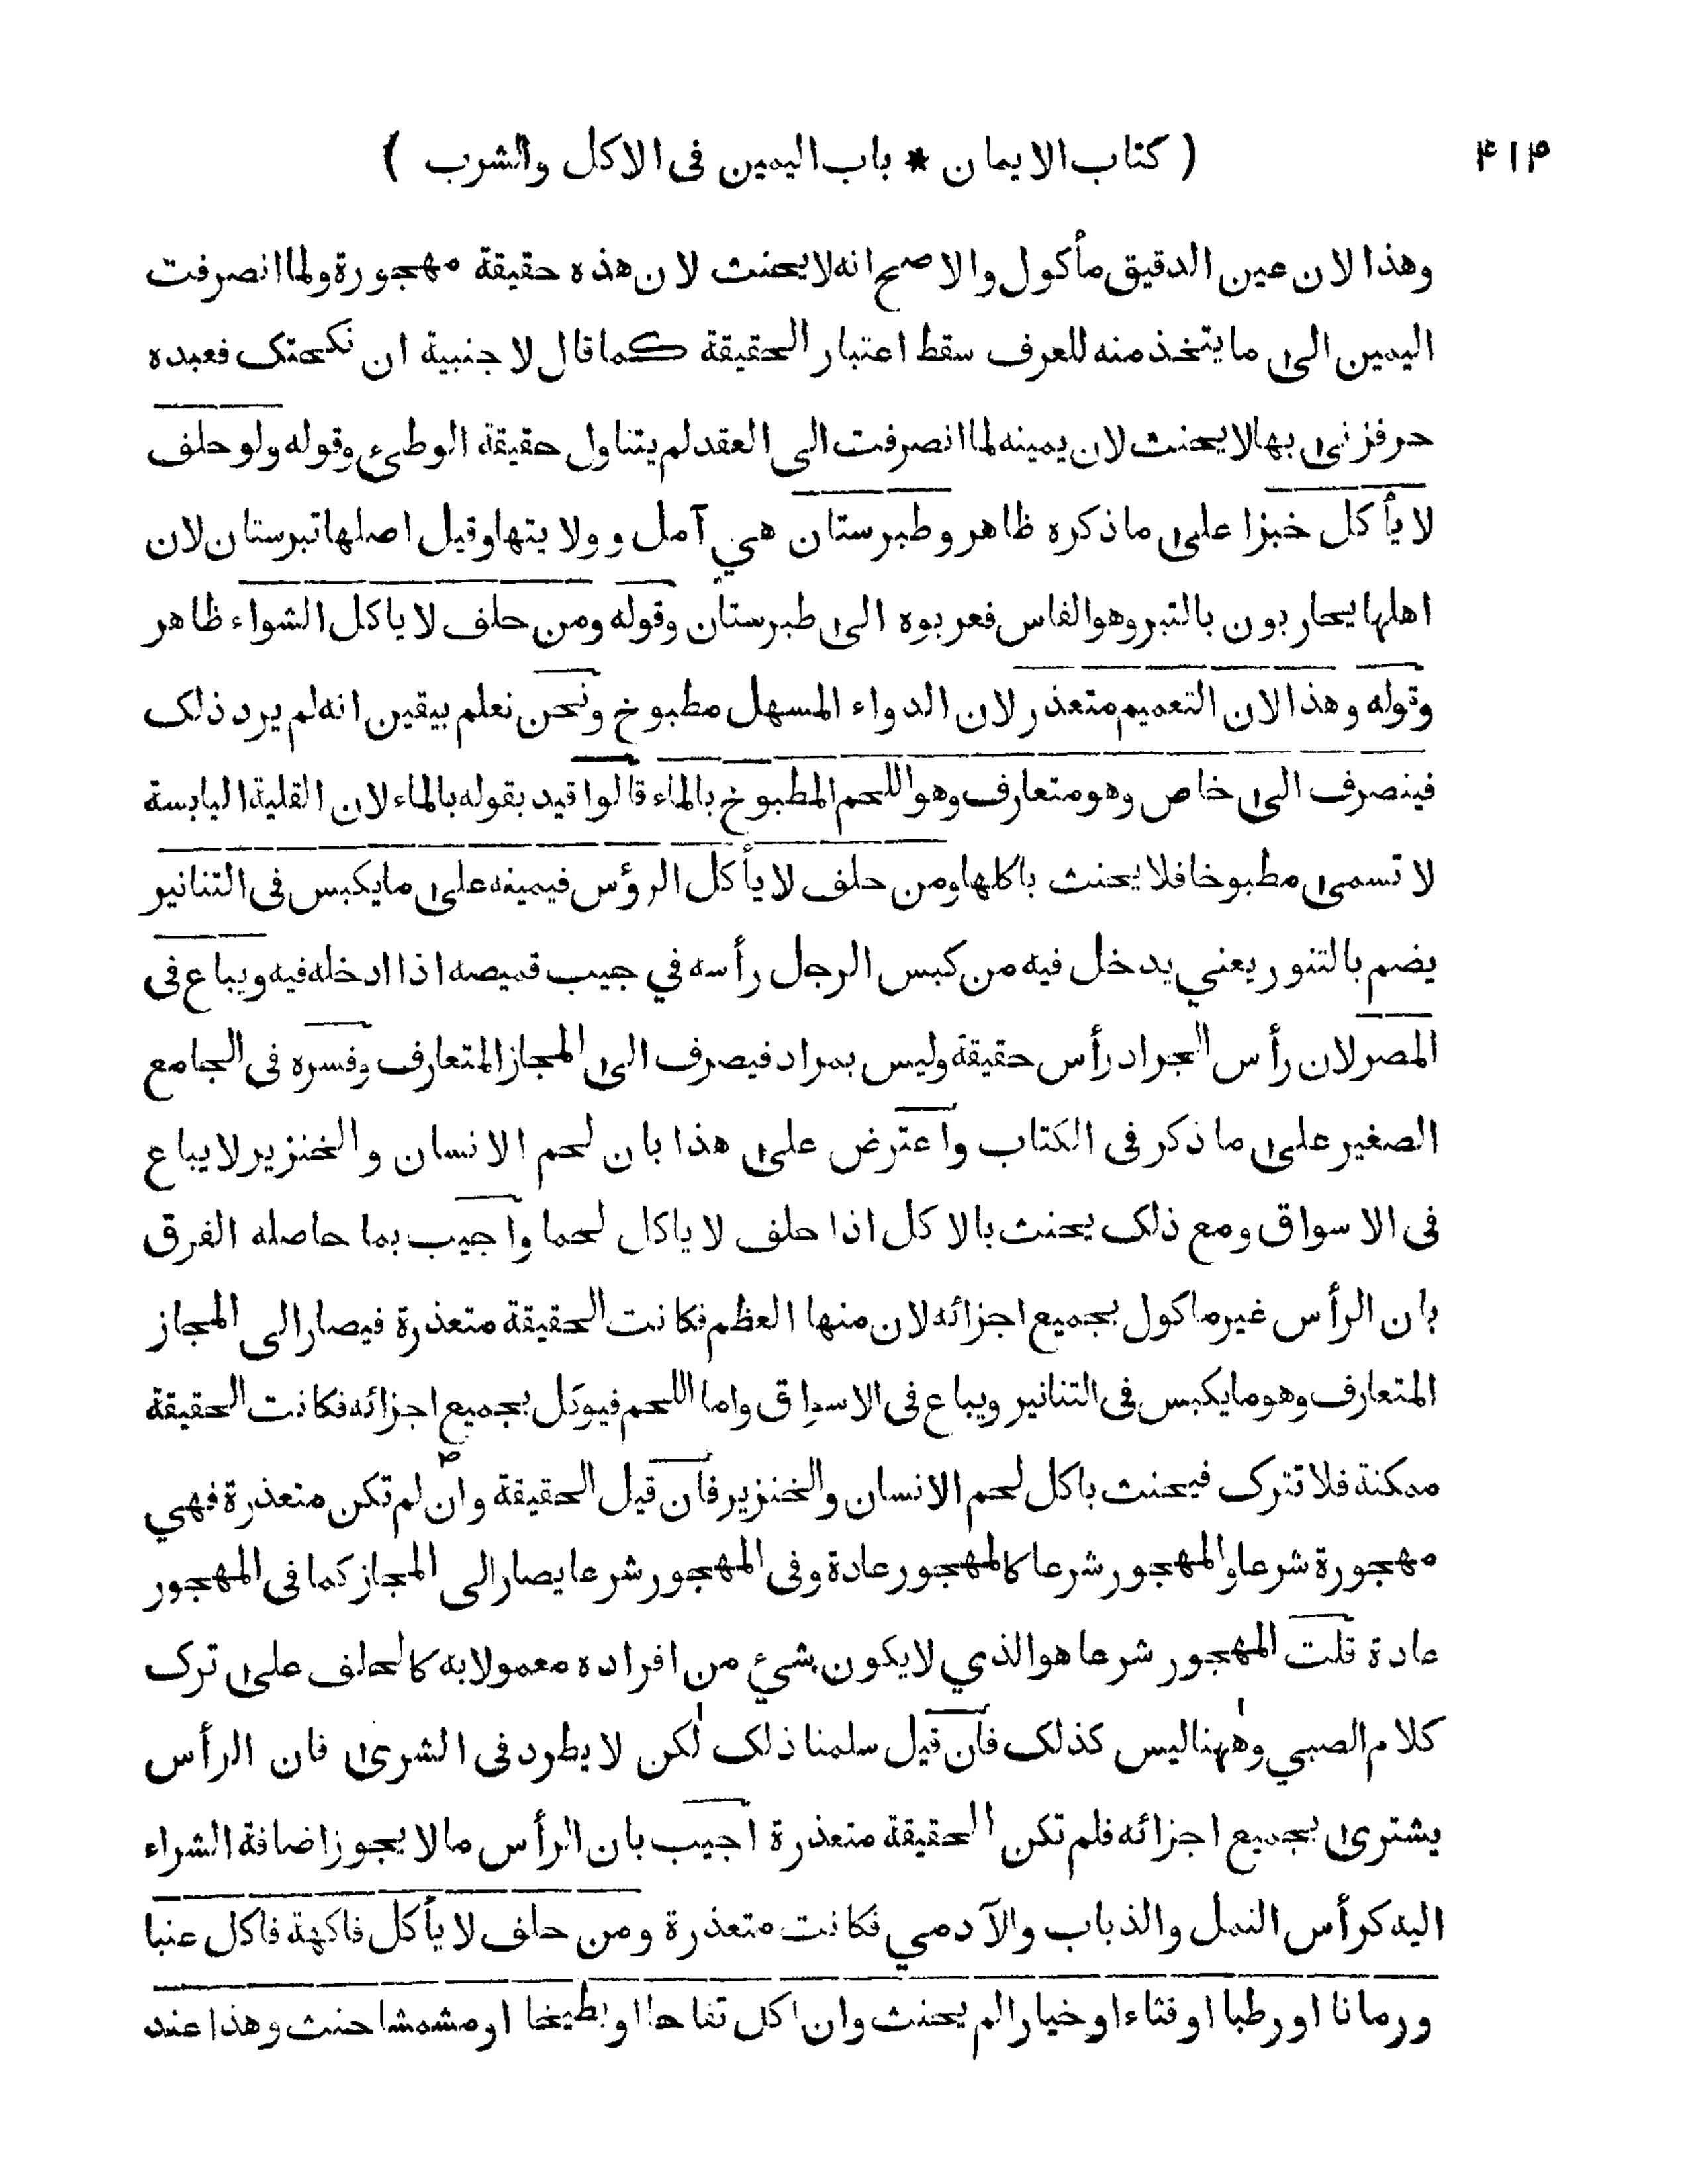 ( كتاب الايمان * باب اليمين فى الاكل والشرب ) ۴۱۴
وهذا لان عين الدقيق مأكول والاصح انه لا يحنث لان هذه حقيقة مهجورة ولما انصرفت
اليمين الى ما يتخذ منه للعرف سقط اعتبار الحقيقة كما قال لاجنبية ان نكحتك فعبده
حر فزنى بها لا يحنث لان يمينه لما انصرفت الى العقد لم يتناول حقيقة الوطىء وقوله ولو حلف
لا يأكل خبزا على ما ذكره ظاهر وطبرستان هي آمل و ولايتها وقيل اصلها تبرستان لان
اهلها يحاربون بالتبر وهو الفاس فعربوه الى طبرستان وقوله ومن حلف لا ياكل الشواء ظاهر
وقوله وهذا لان التعميم متعذر لان الدواء المسهل مطبوخ ونحن نعلم بيقين انه لم يرد ذلك
فينصرف الى خاص وهو متعارف وهو اللحم المطبوخ بالماء قالوا قيد بقوله بالماء لان القلية اليابسة
لا تسمى مطبوخا فلا يحنث باكلها ومن حلف لا يأكل الرؤس فيمينه على ما يكبس فى التنانير
يضم بالتنور يعني يدخل فيه من كبس الرجل رأسه في جيب قميصه اذا ادخله فيه ويباع فى
المصر لان رأس الجراد رأس حقيقة وليس بمراد فيصرف الى المجاز المتعارف وفسره فى الجامع
الصغير على ما ذكر فى الكتاب واعترض على هذا بان لحم الانسان والخنزير لا يباع
فى الاسواق ومع ذلك يحنث بالاكل اذا حلف لا ياكل لحما واجيب بما حاصله الفرق
بان الرأس غير ماكول بجميع اجزائه لان منها العظم فكانت الحقيقة متعذرة فيصار الى المجاز
المتعارف وهو ما يكبس فى التنانير ويباع فى الاسواق واما اللحم فيوكل بجميع اجزائه فكانت الحقيقة
ممكنة فلا تترك فيحنث باكل لحم الانسان والخنزير فان قيل الحقيقة وان لم تكن متعذرة فهي
مهجورة شرعا والمهجور شرعا كالمهجور عادة وفى المهجور شرعا يصار الى المجاز كما فى المهجور
عادة قلت المهجور شرعا هو الذي لا يكون شئ من افراده معمولا به كالحلف على ترك
كلام الصبي وههنا ليس كذلك فان قيل سلمنا ذلك لكن لا يطرد فى الشرى فان الرأس
يشترى بجميع اجزائه فلم تكن الحقيقة متعذرة اجيب بان الرأس ما لا يجوز اضافة الشراء
اليه كرأس النمل والذباب والآدمي فكانت متعذرة ومن حلف لا يأكل فاكهة فاكل عنبا
ورمانا او رطبا او قثاء او خيارا لم يحنث وان اكل تفاحا او بطيخا او مشمشا حنث وهذا عند